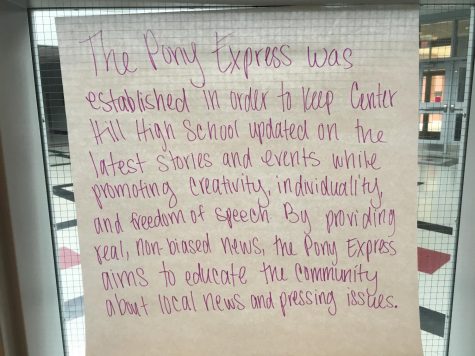 The Pony Express was
established in order to keep Center
Hill High School updated on the
latest stories and events while
promoting creativity, individuality,
and freedom of speech. By providing
real, non-biased news, the Pony Express
aims to educate the community
about local news and pressing issues.